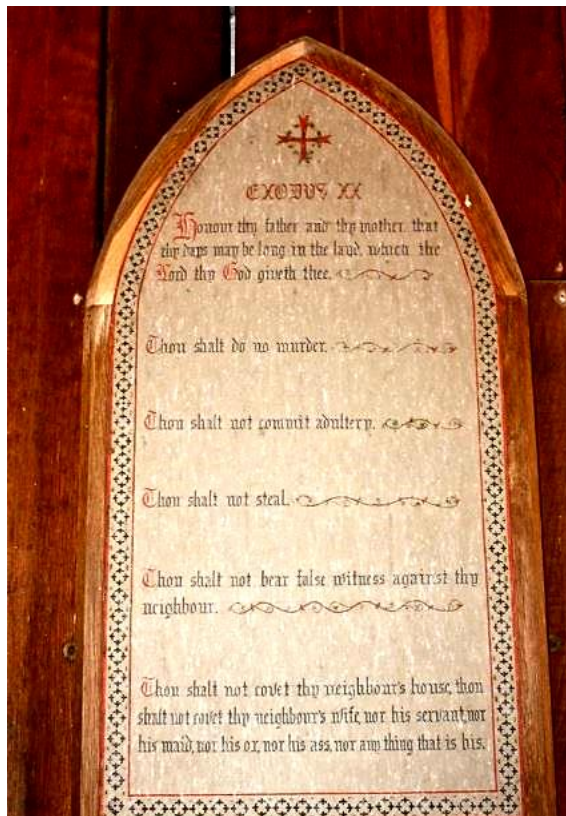 EXODUS XX
Honour thy father and thy mother that
thy days may be long in the land, which the
Lord thy God giveth thee.
Thou shalt do no murder.
Thou shalt not commit adultery.
Thou shalt not steal.
Thou shalt not bear false witness against thy
neighbour.
Thou shalt not covet thy neighbour's house, thou
shalt not covet thy neighbour's wife, nor his servant, nor
his maid, nor his ox, nor his ass, nor any thing that is his.